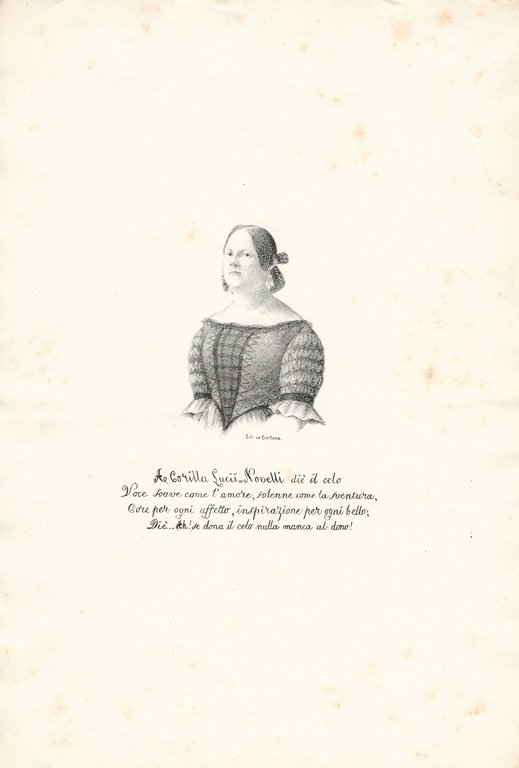 Lit. in Cortona.
A Corilla Lucii-Novelli diè il celo
Voce soave come l'amore, solenne come la sventura,
Core per ogni affetto, inspirazione per ogni bello;
Diè... Ah! se dona il celo nulla manca al dono!